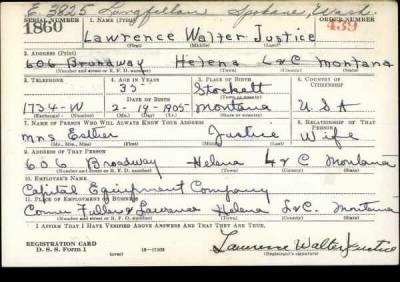 E. 3825 Longfellow Spokane, Wash.
SERIAL NUMBER 1. NAME (Print) ORDER NUMBER
1860 Lawrence Walter Justice 439
(First) (Middle) (Last)
2. ADDRESS (Print)
606 Broadway Helena L&C Montana
(Number and street or R. F. D. number) (Town) (County) (State)
3. TELEPHONE 4. AGE IN YEARS 5. PLACE OF BIRTH 6. COUNTRY OF CITIZENSHIP
35 Stockett
DATE OF BIRTH (Town or county)
1734-W 2-19-1905 Montana U.S.A
(Exchange) (Number) (Mo.) (Day) (Yr.) (State or country)
7. NAME OF PERSON WHO WILL ALWAYS KNOW YOUR ADDRESS 8. RELATIONSHIP OF THAT PERSON
Mrs Justice Wife
(Mr., Mrs., Miss) (First) (Middle) (Last)
9. ADDRESS OF THAT PERSON
606 Broadway Helena L & C Montana
(Number and street or R. F. D. number) (Town) (County) (State)
10. EMPLOYER'S NAME
Capital Equipment Company
11. PLACE OF EMPLOYMENT OR BUSINESS
Corner Fuller & Lawrence Helena L&C. Montana
(Number and street or R. F. D. number) (Town) (County) (State)
I AFFIRM THAT I HAVE VERIFIED ABOVE ANSWERS AND THAT THEY ARE TRUE.
REGISTRATION CARD
D. S. S. Form 1 (over) Lawrence Walter Justice
(Registrant's signature)